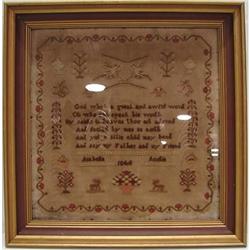 God what a great and awful word
Oh who can speak his worth
By saints in heaven thou art adored
And feared by men on earth
And yet a little child may bend
And say my Father and my Friend
Isabella